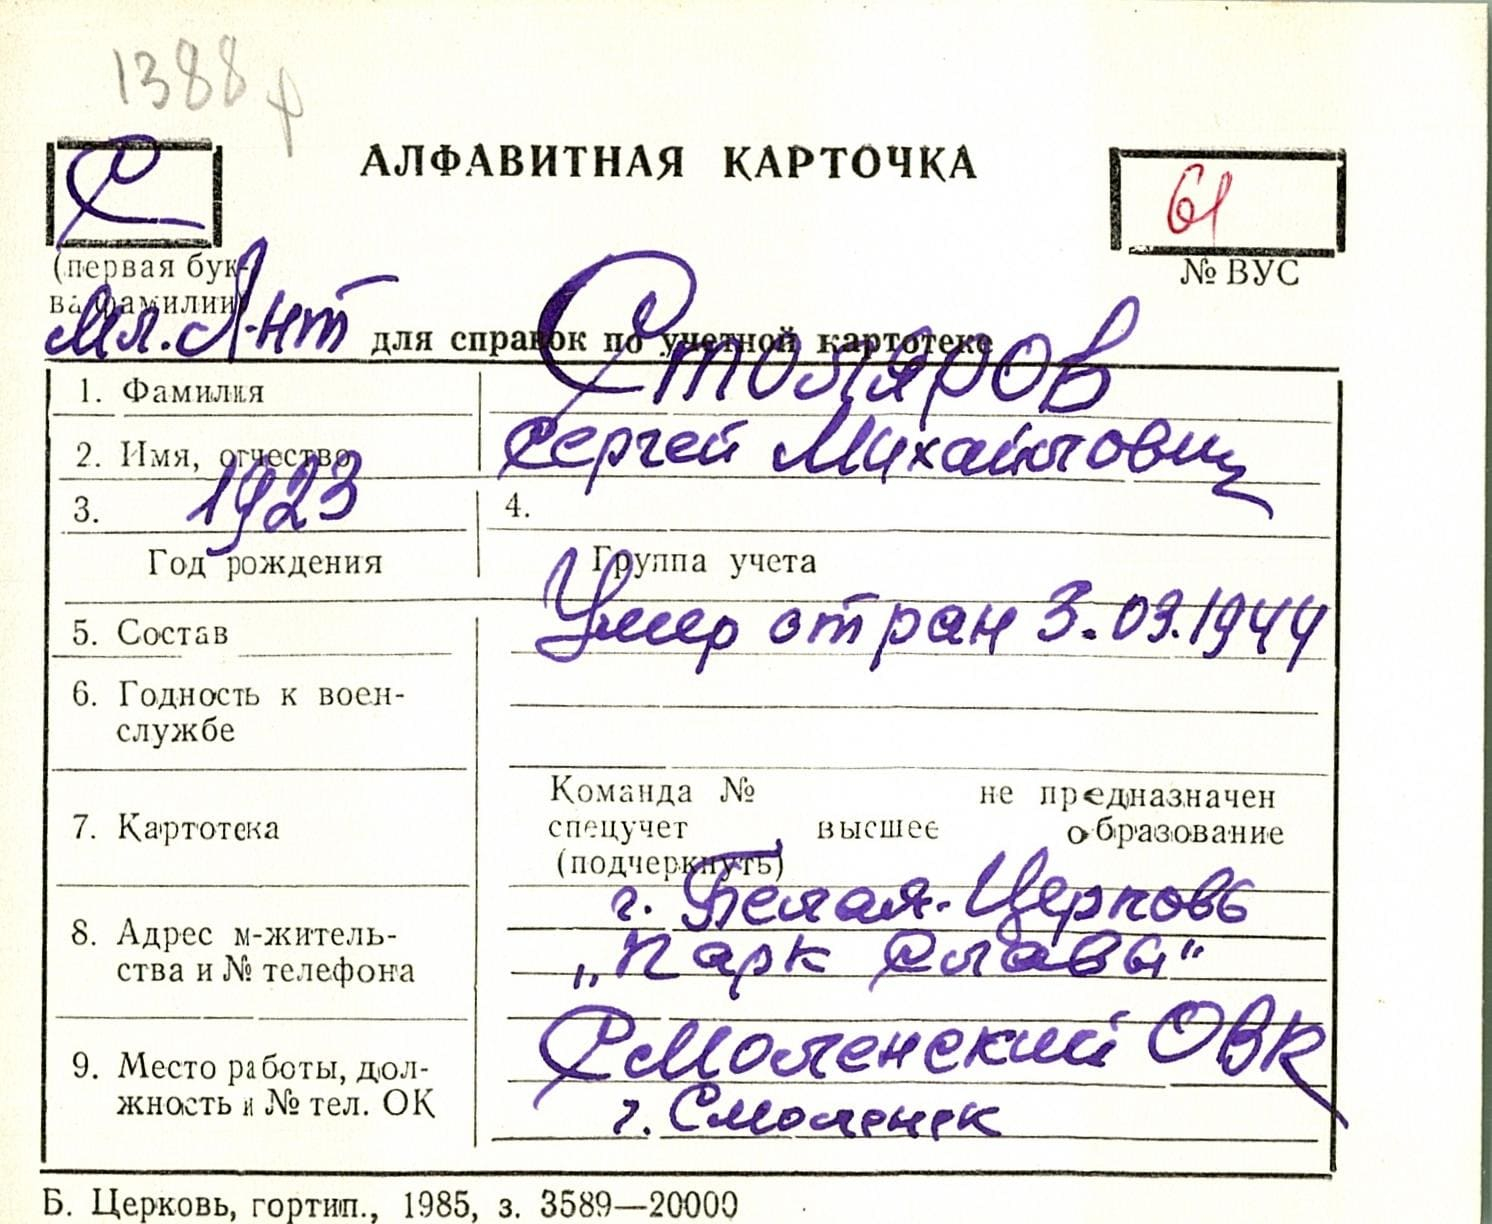 1388 р
С
АЛФАВИТНАЯ КАРТОЧКА
61
(первая бук-
ва фамилии)
№ ВУС
Мл. л-нт
для справок по учетной картотеке
1. Фамилия
Столяров
2. Имя, отчество
Сергей Михайлович
3. 1923
4.
Год рождения
Группа учета
5. Состав
Умер от ран 3.03.1944
6. Годность к воен-
службе
7. Картотека
Команда № не предназначен
спецучет высшее образование
(подчеркнуть)
8. Адрес м-житель-
ства и № телефона
г. Белая-Церковь
„Парк Славы"
9. Место работы, дол-
жность и № тел. ОК
Смоленский ОВК
г. Смоленск
Б. Церковь, гортип., 1985, з. 3589—20000